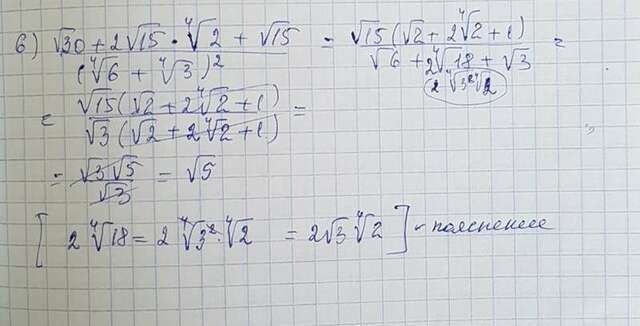 б) √30 + 2√15 · ⁴√2 + √15 / (⁴√6 + ⁴√3)² = √15 (√2 + 2⁴√2 + 1) / √6 + 2⁴√18 + √3 =
2 ⁴√3² ⁴√2
= √15 (√2 + 2⁴√2 + 1) / √3 (√2 + 2⁴√2 + 1) =
= √3 √5 / √3 = √5
[ 2 ⁴√18 = 2 ⁴√3² · ⁴√2 = 2√3 ⁴√2 ] - пояснение